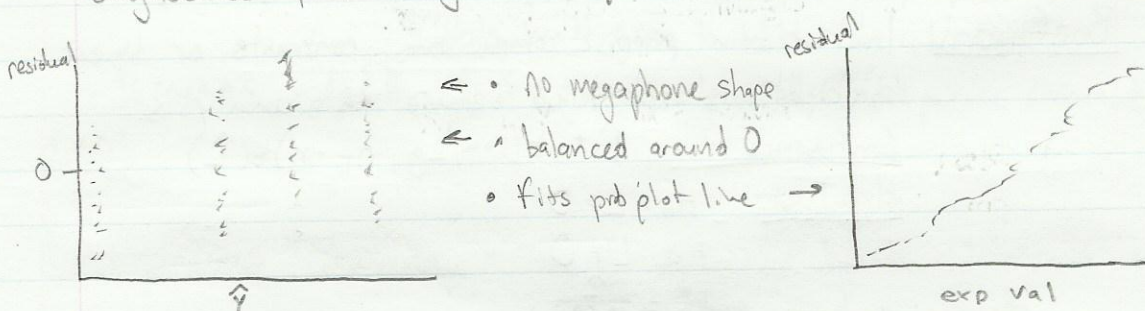 residual
0
Ŷ
← • no megaphone shape
← • balanced around 0
• fits prob plot line →
residual
exp val